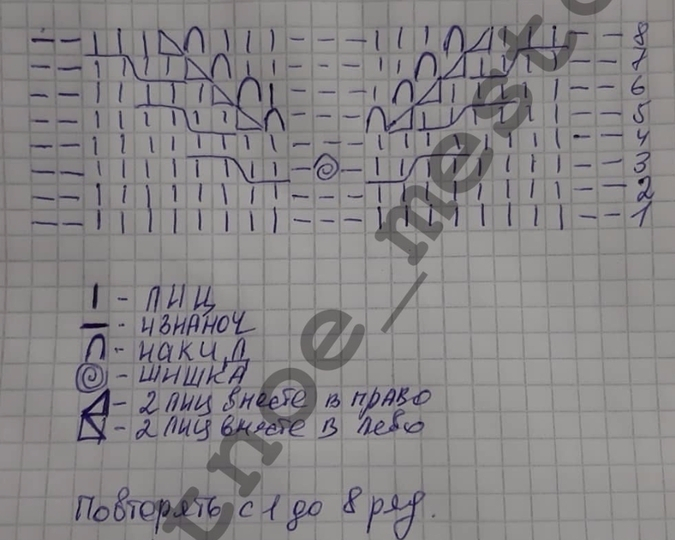 8
7
6
5
4
3
2
1
| - ЛИЦ
— - ИЗНАНОЧ
∩ - НАКИД
- ШИШКА
- 2 ЛИЦ вместе в право
- 2 ЛИЦ вместе в лево
Повторять с 1 до 8 ряд.
tnoe_mesto